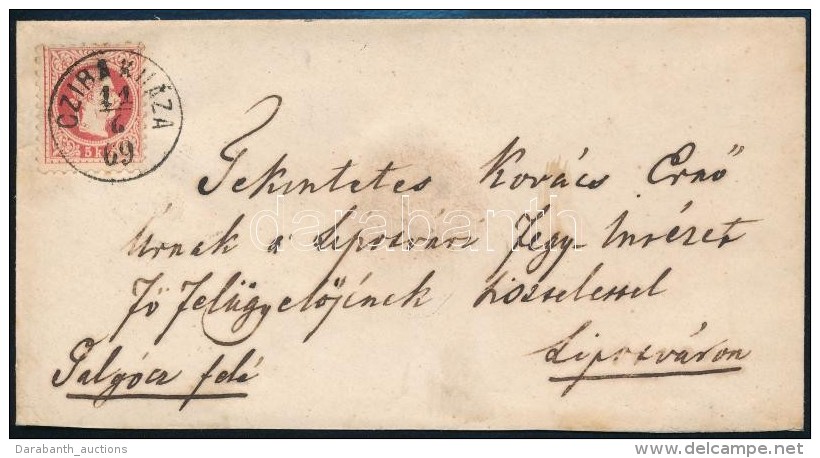 CZIBAKHÁZA
11
6
69
5 Kr
Tekintetes Kovács Ernő
Urnak a Lipotvári Fegy-Intézet
Fő Felügyelőjének tisztelettel
Lipotváron
Galgócz felé
darabanth
Darabanth_auctions
delcampe.net